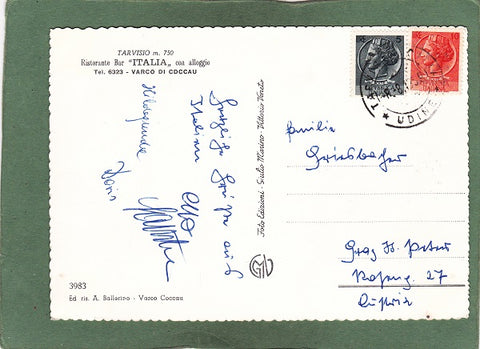 TARVISIO m. 750
Ristorante Bar "ITALIA" con alloggio
Tel. 6323 - VARCO DI COCCAU
Herzliche Grüsse aus
Italien
Otto
Hildegunde
Doris
Foto Edizioni - Giulio Marino - Vittorio Veneto
3983
Ed. ris. A. Ballarino - Varco Coccau
5
10
UDINE
Familie
Griesbacher
Graz St. Peter
27
Austria